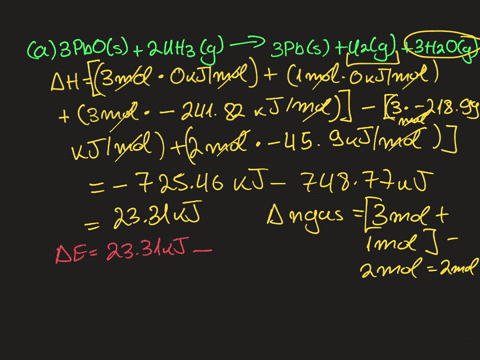 (a) 3PbO(s) + 2NH3(g) → 3Pb(s) + N2(g) + 3H2O(g)
ΔH = [(3mol · 0kJ/mol) + (1mol · 0kJ/mol)
+ (3mol · -241.82 kJ/mol)] - [3 · -218.99
mol
kJ/mol) + (2mol · -45.9kJ/mol)]
= -725.46 kJ - 748.77kJ
= 23.31kJ Δngas = [3mol +
1mol] -
2mol = 2mol
ΔE = 23.31kJ -